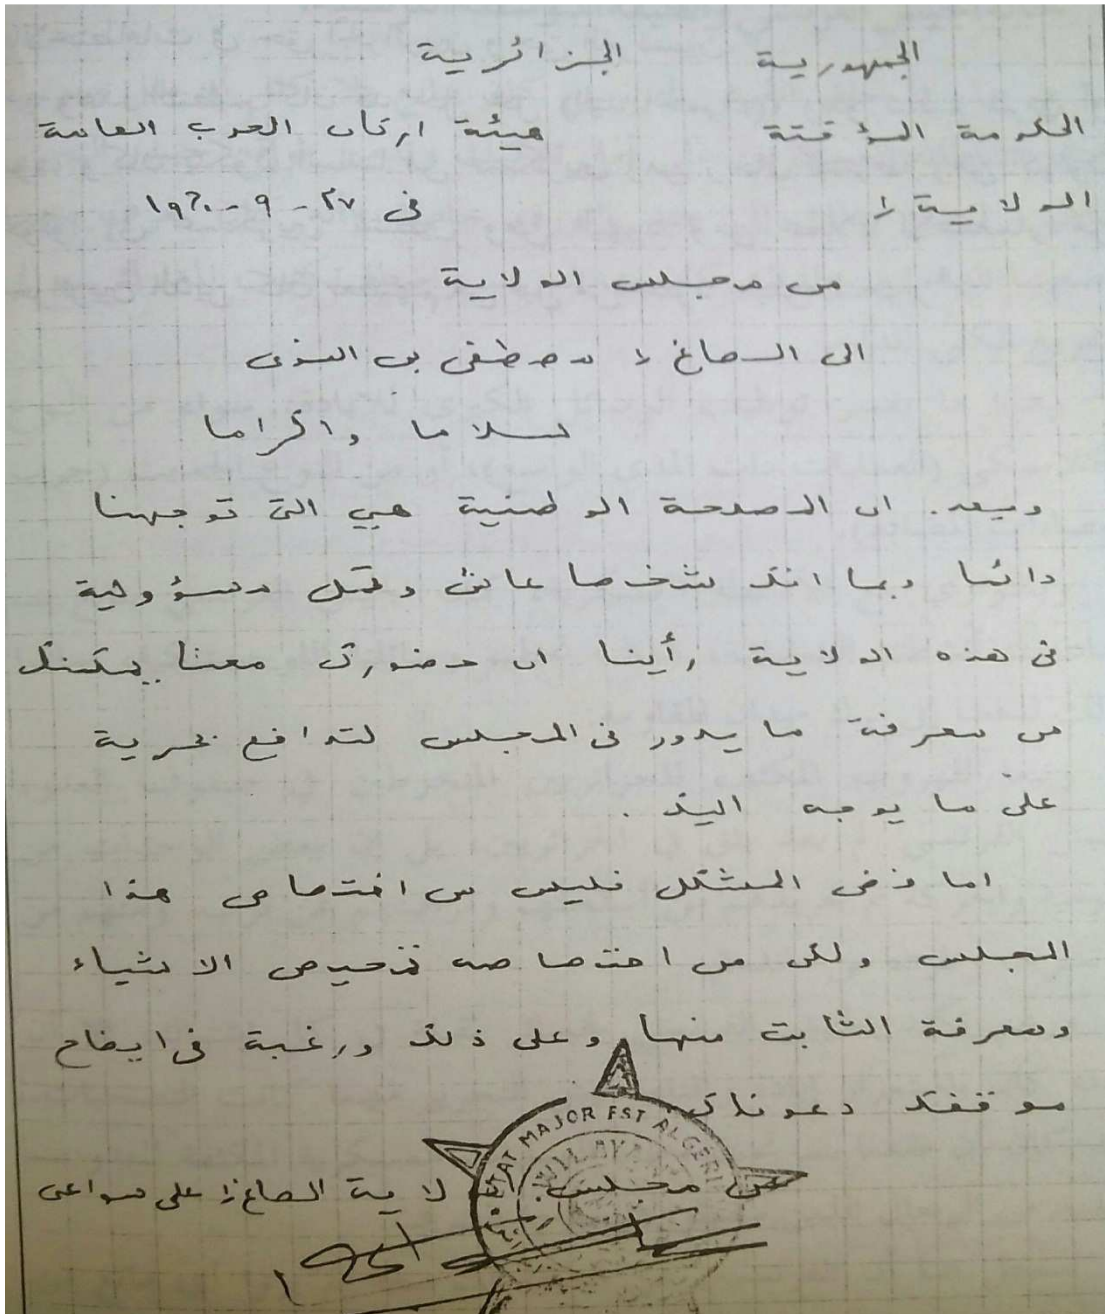 الجمهورية الجزائرية
الحكومة المؤقتة هيئة اركان الحرب العامة
الولاية ١ في ٢٧ - ٩ - ١٩٦٠
من مجلس الولاية
الى الصاغ ١ مصطفى بن النوى
سلاما واكراما
وبعد. ان المصلحة الوطنية هي التي توجهنا
دائما وبما انك شخصا عاش وتحمل مسؤولية
في هذه الولاية رأينا ان حضورك معنا يمكنك
من معرفة ما يدور في المجلس لتدافع بحرية
على ما يوجه اليك .
اما فض المشكل فليس من اختصاص هذا
المجلس ولكن من اختصاصه تمحيص الاشياء
ومعرفة الثابت منها وعلى ذلك ورغبة في ايضاح
موقفك دعوناك
ETAT MAJOR EST ALGERI
WILAYA
عن مجلس الولاية الصاغ ١ علي سواعي